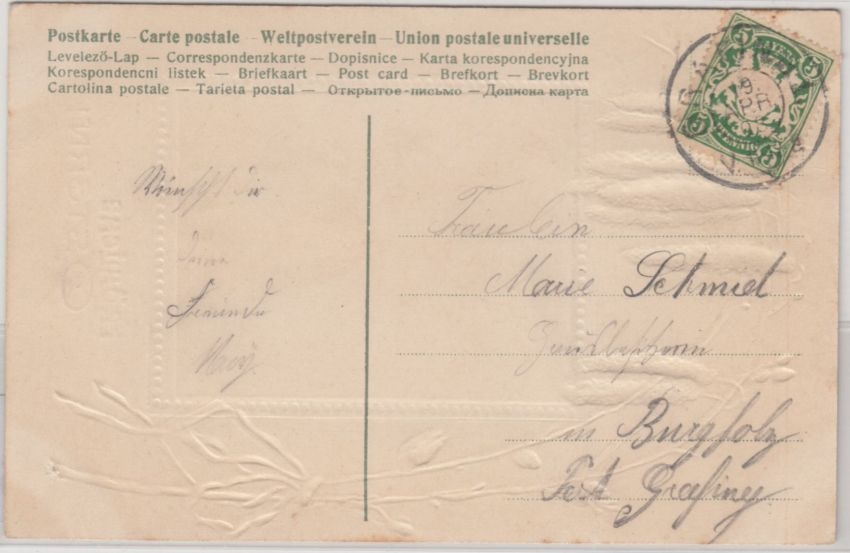 Postkarte — Carte postale — Weltpostverein — Union postale universelle
Levelező-Lap — Correspondenzkarte — Dopisnice — Karta korespondencyjna
Korespondencni listek — Briefkaart — Post card — Brefkort — Brevkort
Cartolina postale — Tarieta postal — Открытое-письмо — Дописна карта
5 5
PFENNIG
5 5
Wünscht dir
deine
Freundin
Fräulein
Marie Schmid
in Burgholz
Post Grafing